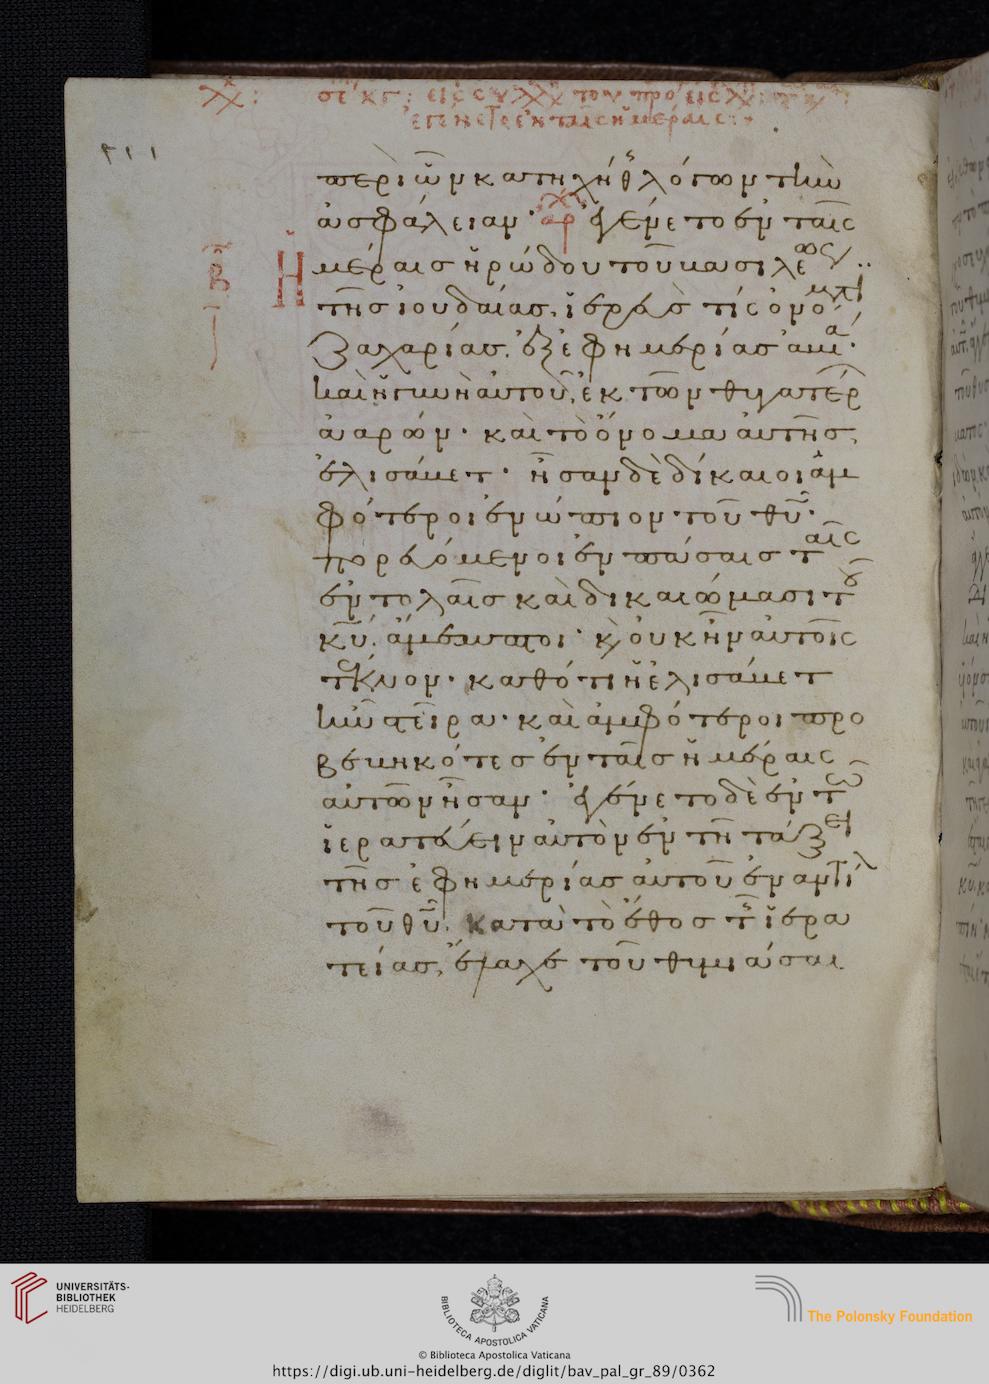 περὶ ὧν κατηχήθης λόγων τὴν
ἀσφάλειαν· ἀρχ ἐγένετο ἐν ταῖς
β Ἡμέραις ἡρώδου τοῦ βασιλέως
τῆς ἰουδαίας, ἱερεὺς τίς ὀνόματι
ζαχαρίας. ἐξ ἐφημερίας ἀβιά·
καὶ ἡ γυνὴ αὐτοῦ, ἐκ τῶν θυγατέρ
ἀαρών· καὶ τὸ ὄνομα αὐτῆς,
ἐλισάβετ· ἦσαν δὲ δίκαιοι ἀμ
φότεροι ἐνώπιον τοῦ θυ·
πορευόμενοι ἐν πάσαις ταῖς
ἐντολαῖς καὶ δικαιώμασι τοῦ
κυ, ἄμεμπτοι· κ οὐκ ἦν αὐτοῖς
τέκνον· καθότι ἡ ἐλισάβετ
ἦν στεῖρα· καὶ ἀμφότεροι προ
βεβηκότες ἐν ταῖς ἡμέραις
αὐτῶν ἦσαν· ἐγένετο δὲ ἐν τῶ
ἱερατεύειν αὐτὸν ἐν τῆ τάξει
τῆς ἐφημερίας αὐτοῦ ἔναντι
τοῦ θυ, κατὰ τὸ ἔθος τῆς ἱερα
τείας, ἔλαχε τοῦ θυμιάσαι
UNIVERSITÄTS-
BIBLIOTHEK
HEIDELBERG
BIBLIOTECA APOSTOLICA VATICANA
The Polonsky Foundation
© Biblioteca Apostolica Vaticana
https://digi.ub.uni-heidelberg.de/diglit/bav_pal_gr_89/0362